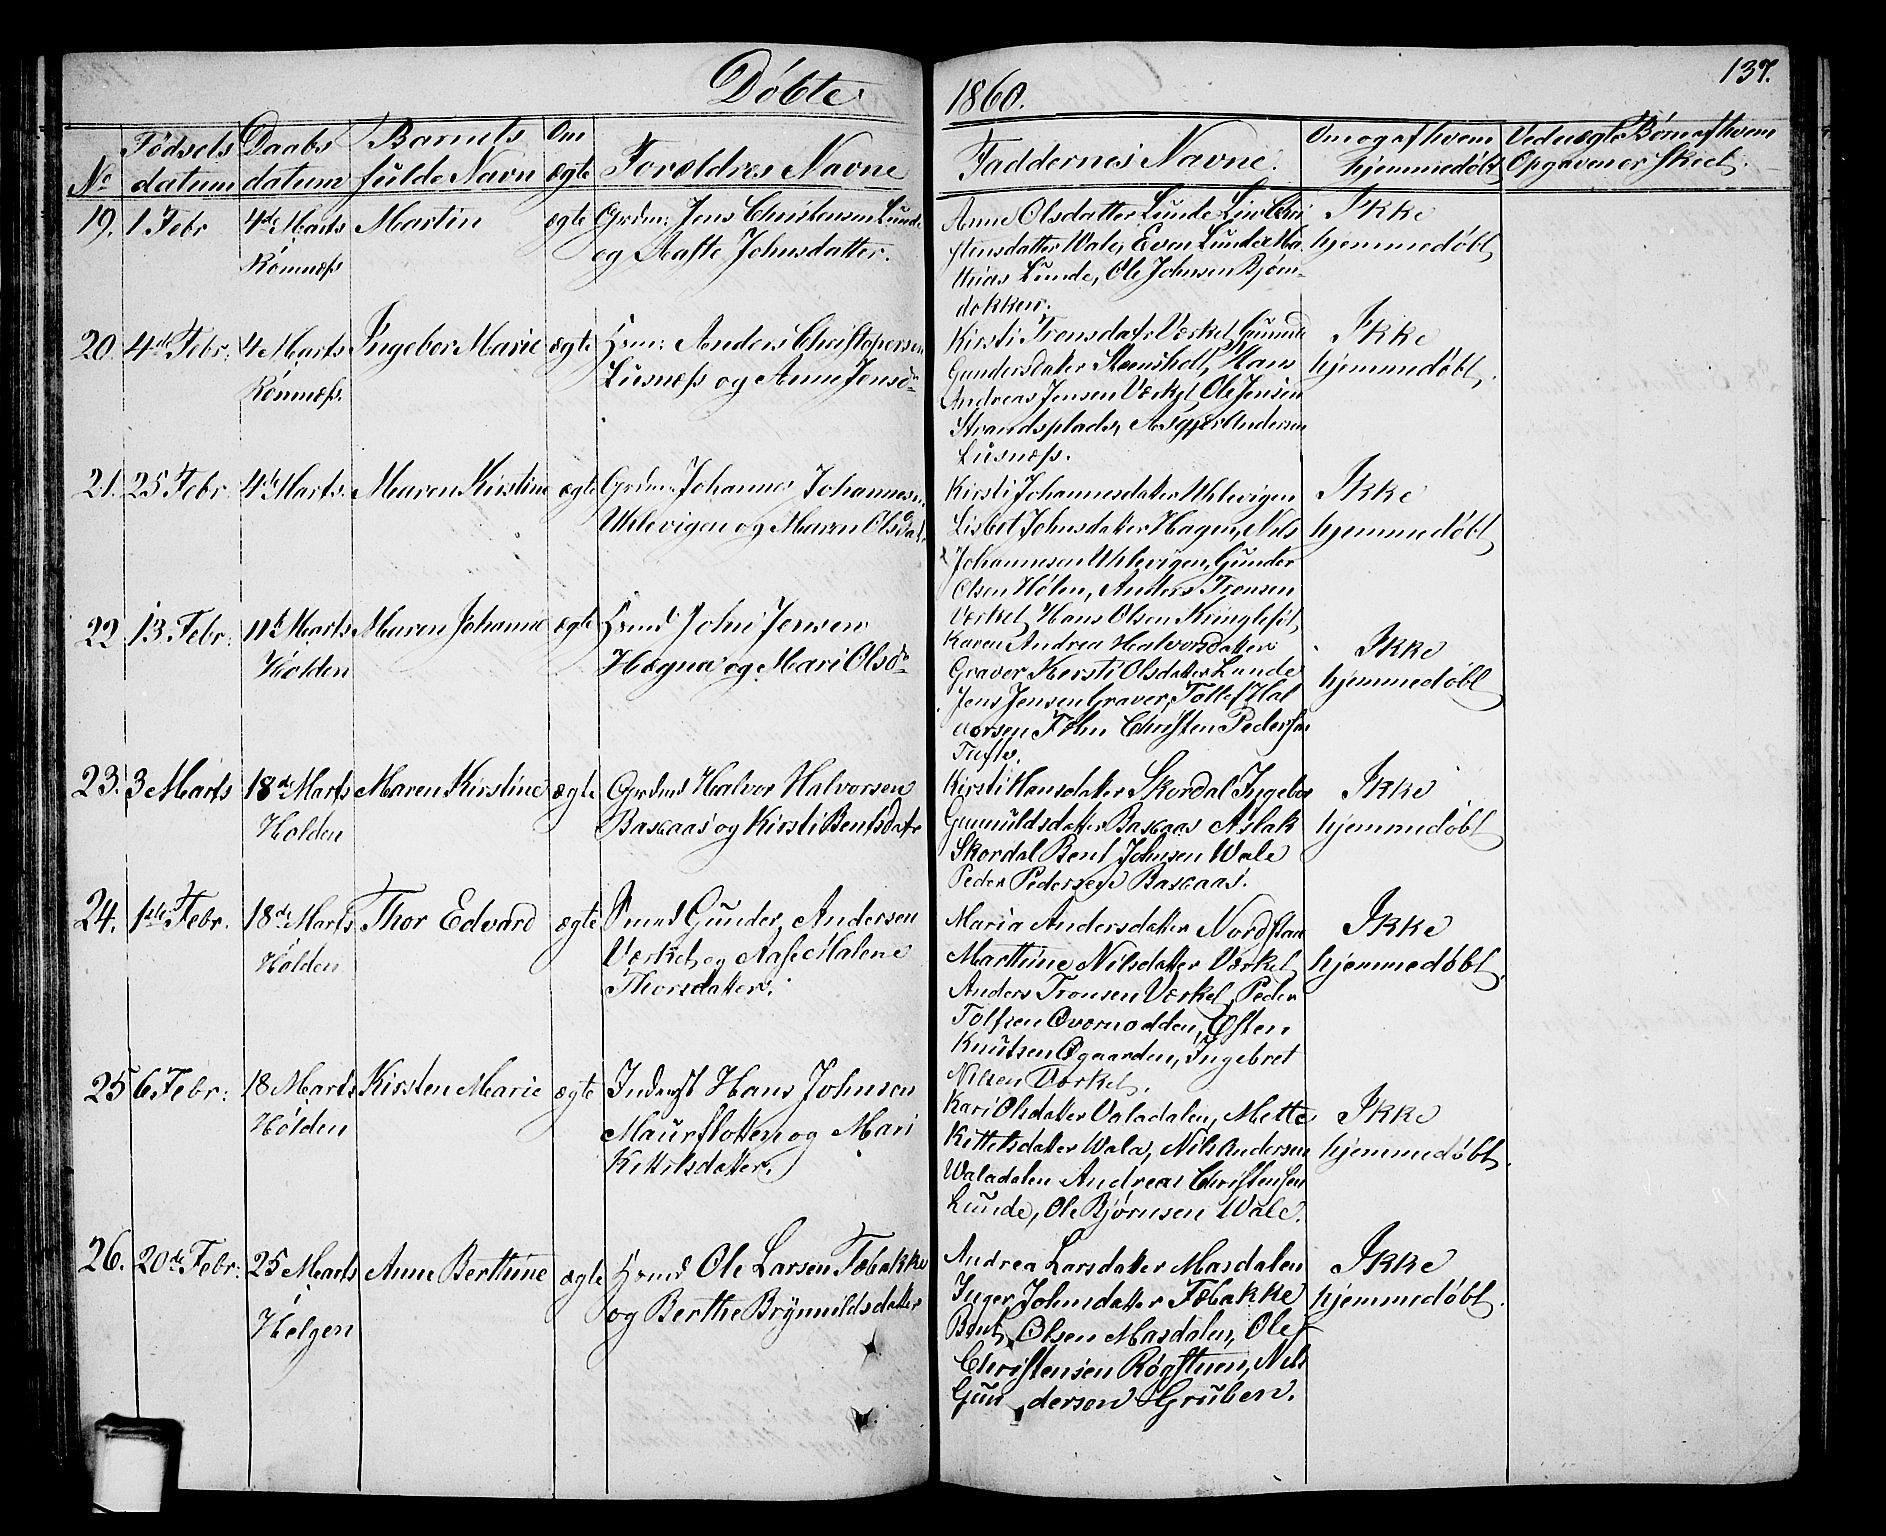 Döbte 1860. 137.
No Fødsels datum Daabs datum Barnets fulde Navn Om ægte Forældres Navne Faddernes Navne. Om og af hvem hjemmedøbt Ved uægte Børn af hvem Opgaven er skeet.
19. 1 Febr 4de Marts Martin ægte Grdm: Jens Christensen Lunde
Romnæss og Aaste Johnsdatter.
Anne Olsdatter Lunde Liv Chri
stensdatter Wale, Even Lunde Ma
thias Lunde, Ole Johnsen Bjørn-
dokken.
Ikke
hjemmedøbt
20. 4de Febr. 4 Marts Ingebor Marie ægte Hsm: Anders Christopersen
Romnæss. Lusnæss og Anne Jensd.
Kirsti Tronsdatr Værket, Gunnil
Gundersdatter Steensholt, Hans
Andreas Jensen Værket, Ole Jensen
Strandsplads, Asgjer Andersen
Lusnæss.
Ikke
hjemmedøbt.
21. 25 Febr. 4de Marts. Maren Kirstine ægte Grdm: Johannes Johannesn
Uhlevigen og Maren Olsdat.
Kirsti Johannesdatter Uhlevigen
Lisbet Johnsdatter Hagen, Nils
Johannesen Uhlevigen, Gunder
Olsen Hølen, Anders Tronsen
Værket, Hans Olsen Kringleföt,
Ikke
hjemmedøbt
22 13. Febr. 11te Marts Maren Johanne ægte Hsmd John Jensen
Holden Hægna og Mari Olsd.
Karen Andrea Halvorsdatter
Graver Kersti Olsdatter Lunde
Jens Jensen Graver, Tollef Hal
vorsen Holm Christen Pedersen
Tufte.
Ikke
hjemmedøbt
23. 3 Marts 18de Marts Maren Kirstine ægte Grdmd Halvor Halvorsen
Holden Baskaas og Kirsti Bentsdatr
Kirsti Hansdatter Skordal Ingebor
Gunnuldsdatter Baskaas Aslak
Skordal Bent Johnsen Wale
Peder Pedersen Baskaas.
Ikke
hjemmedøbt
24. 1ste Febr. 18de Marts Thor Edvard ægte Smmd Gunder Andersen
Holden Værket og Aase Malene
Thorsdatter.
Maria Andersdatter Nordstan
Marthine Nilsdatter Værket
Anders Tronsen Værket, Peder
Tolfsen Overnodden, Østen
Knutsen Øgaarden, Ingebret
Nilsen Værket.
Ikke
hjemmedøbt.
25 6. Febr: 18 Marts Kirsten Marie ægte Inderst Hans Johnsen
Holden Maurflotten og Mari
Kittilsdatter.
Kari Olsdatter Valadalen, Mette
Kittelsdatter Wala, Nils Andersen
Waladalen Andreas Christensen
Lunde, Ole Bjørnsen Wale.
Ikke
hjemmedøbt.
26. 20de Febr: 25 Marts Anne Berthine ægte Hsmd Ole Larsen Fæbakke
Helgen og Berthe Brynnildsdatter
Andrea Larsdatter Masdalen
Inger Johnsdatter Fæbakke
Bent Olsen Masdalen, Ole
Christensen Røgstuen, Nils
Gundersen Gruben.
Ikke
hjemmedøbt.